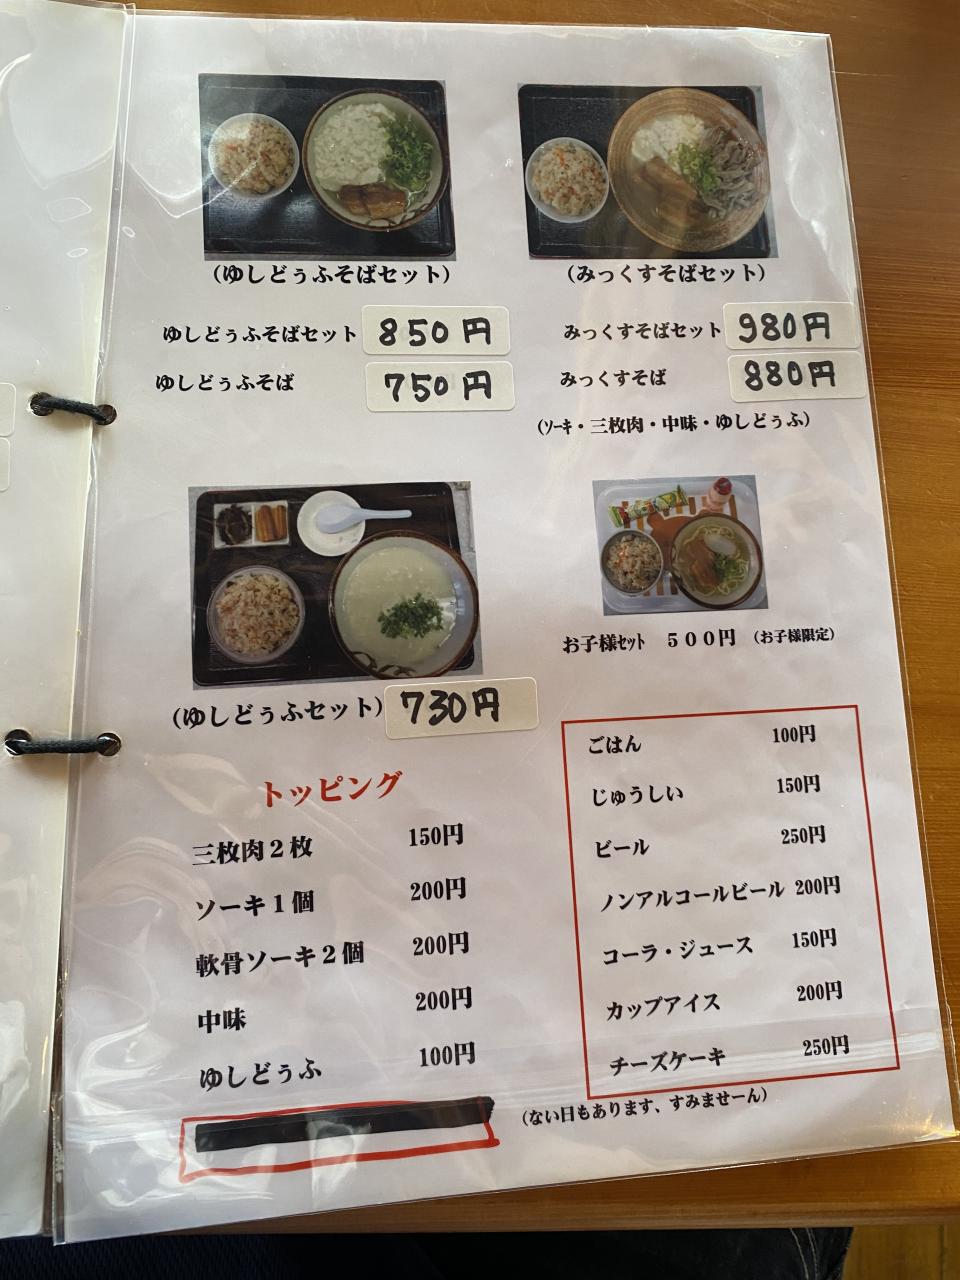 (ゆしどぅふそばセット)
ゆしどぅふそばセット 850円
ゆしどぅふそば 750円
(みっくすそばセット)
みっくすそばセット 980円
みっくすそば 880円
(ソーキ・三枚肉・中味・ゆしどぅふ)
(ゆしどぅふセット) 730円
お子様セット 500円 (お子様限定)
トッピング
三枚肉2枚 150円
ソーキ1個 200円
軟骨ソーキ2個 200円
中味 200円
ゆしどぅふ 100円
ごはん 100円
じゅうしい 150円
ビール 250円
ノンアルコールビール 200円
コーラ・ジュース 150円
カップアイス 200円
チーズケーキ 250円
(ない日もあります、すみませーん)